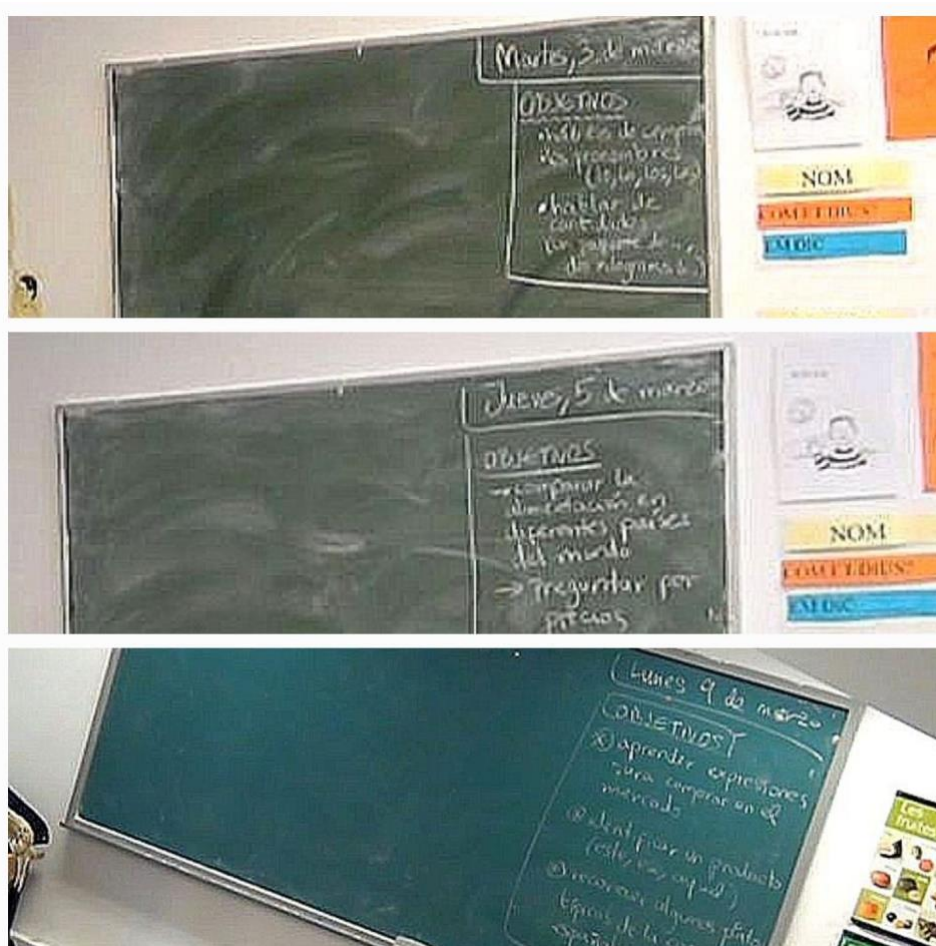 Martes, 3 de marzo
OBJETIVOS
de
los pronombres
(lo, la, los, las)
• hablar de
cantidades
un paquete de
dos kilogramos de
NOM
COM ET DIUS?
EM DIC
Jueves, 5 de marzo
OBJETIVOS
→ comparar la
alimentación en
diferentes países
del mundo
→ Preguntar por
precios
NOM
COM ET DIUS?
EM DIC
Lunes 9 de marzo
OBJETIVOS
aprender expresiones
para comprar en el
mercado
identificar un producto
(este, ese, aquel)
reconocer algunos platos
típicos de la
Les
fruites